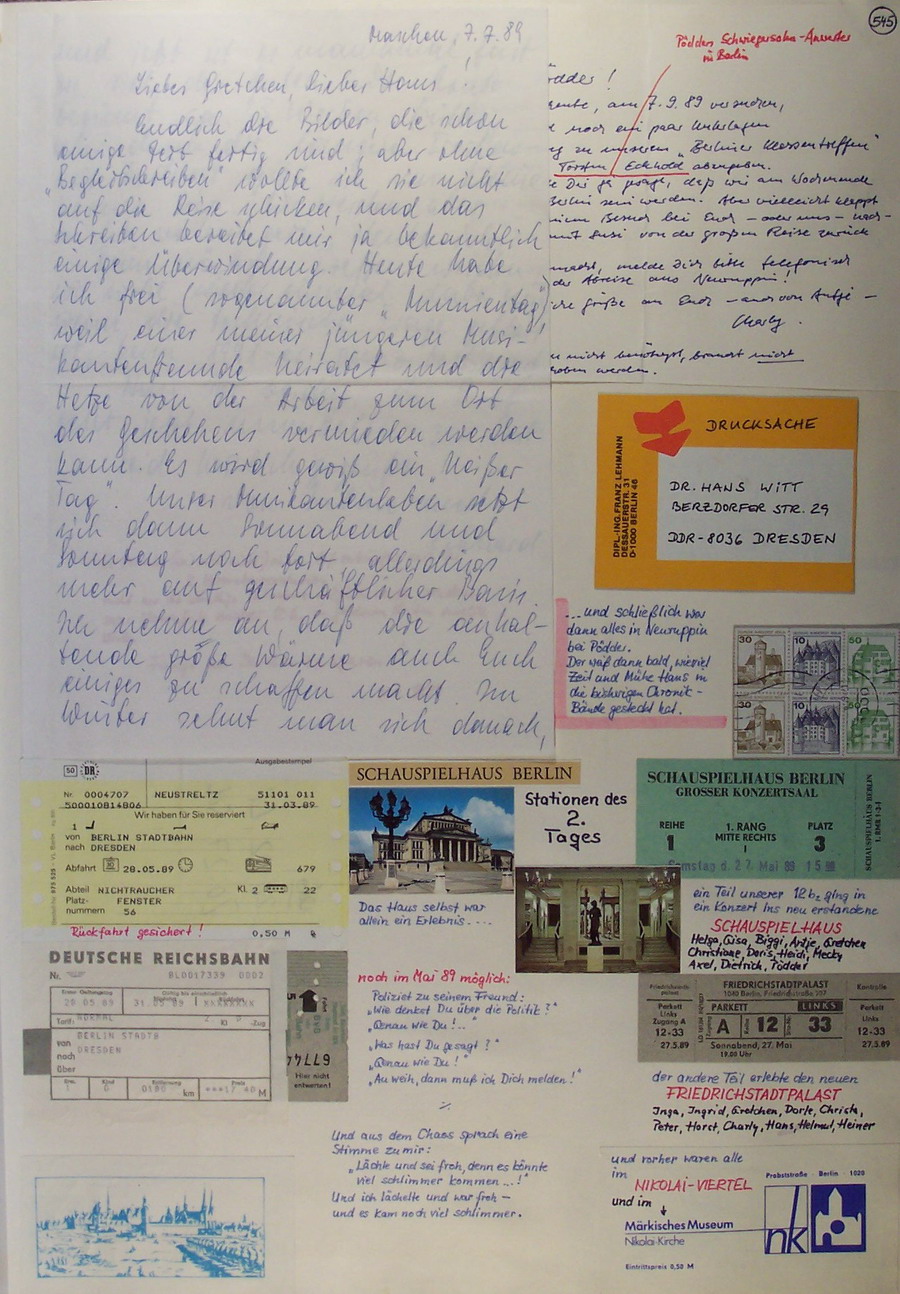 545
Maschen, 7.7.89
Liebes Gretchen, lieber Hans!
Endlich die Bilder, die schon
einige Zeit fertig sind, aber ohne
"Begleitschreiben" wollte ich sie nicht
auf die Reise schicken, und das
Schreiben bereitet mir ja bekanntlich
einige Überwindung. Heute habe
ich frei (sogenannter
weil einer meiner jüngeren Musi-
kantenfreunde heiratet und die
Hetze von der Arbeit zum Ort
des Geschehens vermieden werden
kann. Es wird gewiß ein "heißer
Tag". Unser Musikantenleben setzt
sich dann Sonnabend und
Sonntag noch fort, allerdings
mehr auf geschäftlicher Basis.
Ich nehme an, daß die anhal-
tende große Wärme auch Euch
einiges zu schaffen macht. Im
Winter sehnt man sich danach,
Pödders Schwiegersohn-Anwärter
in Berlin
ödder!
am 7.9.89
noch ein paar Unterlagen
zu unserem "Berliner Klassentreffen"
Torsten Eckhold abzugeben.
Dir ja gesagt, daß wir am Wochenende
Berlin sein werden. Aber vielleicht klappt
Besuch bei Euch - oder uns - nach-
mit Susi von der großen Reise zurück
melde Dich bitte telefonisch
der Abreise aus Neuruppin!
Grüße an Euch - auch von Antje -
Charly.
nicht benötigt, braucht nicht
werden.
DRUCKSACHE
DIPL.-ING. FRANZ LEHMANN
DESSAUERSTR. 31
D-1000 BERLIN 46
DR. HANS WITT
BERZDORFER STR. 29
DDR-8036 DRESDEN
...und schließlich war
dann alles in Neuruppin
bei Pödder.
Der weiß dann bald, wieviel
Zeit und Mühe Hans in
die bisherigen Chronik-
Bände gesteckt hat.
30 10 50
30 10 50
50 DR
Ausgabestempel
Nr. 0004707 NEUSTRELTZ 51101 011
500010814806 31.03.89
Wir haben für Sie reserviert
1
von BERLIN STADTBAHN
nach DRESDEN
Abfahrt 28.05.89 679
Abteil NICHTRAUCHER Kl. 2 22
Platz- FENSTER
nummern 56
0,50 M
Rückfahrt gesichert!
SCHAUSPIELHAUS BERLIN
Stationen des
2.
Tages
Das Haus selbst war
allein ein Erlebnis....
SCHAUSPIELHAUS BERLIN
GROSSER KONZERTSAAL
REIHE 1. RANG PLATZ
1 MITTE RECHTS 3
Samstag d. 27. Mai 89 15
SCHAUSPIELHAUS BERLIN
ein Teil unserer 12b2 ging in
ein Konzert ins neu erstandene
SCHAUSPIELHAUS
Helga, Gisa, Biggi, Antje, Gretchen
Christiane, Doris, Heidi, Mecky
Axel, Dietrich, Pödder
DEUTSCHE REICHSBAHN
Nr. RL0017339 0002
28 05 89
NORMAL
von BERLIN STADTB
nach DRESDEN
über
km
17.40 M
67774
Hier nicht
entwerten!
noch im Mai 89 möglich:
Polizist zu seinem Freund:
"Wie denkst Du über die Politik?"
"Genau wie Du!.."
"Was hast Du gesagt?"
"Genau wie Du!"
"Au weih, dann muß ich Dich melden!"
Und aus dem Chaos sprach eine
Stimme zu mir:
"Lächle und sei froh, denn es könnte
viel schlimmer kommen...!"
Und ich lächelte und war froh -
und es kam noch viel schlimmer.
FRIEDRICHSTADTPALAST
1040 Berlin, Friedrichstraße 107
Friedrichstadt-
palast
Parkett
Links
Zugang A
12-33
27.5.89
PARKETT LINKS
Zugang A Reihe 12 33
Sonnabend, 27. Mai
19.00 Uhr
Kontrolle
Parkett
Links
12-33
27.5.89
der andere Teil erlebte den neuen
FRIEDRICHSTADTPALAST
Inga, Ingrid, Gretchen, Dorle, Christa,
Peter, Horst, Charly, Hans, Helmut, Heiner
und vorher waren alle
im
NIKOLAI-VIERTEL
und im
Märkisches Museum
Nikolai-Kirche
Probststraße Berlin · 1020
nk
Eintrittspreis 0,50 M